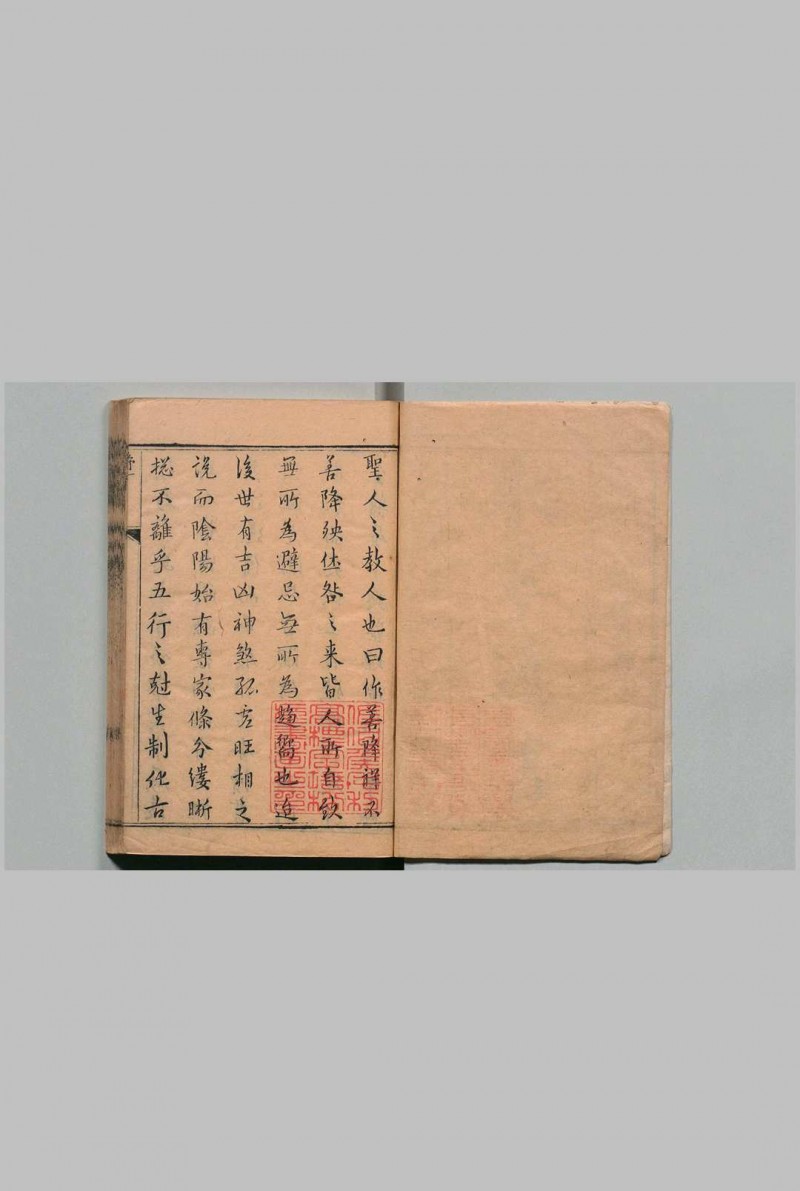 聖人之教人也曰作善降祥不
善降殃休咎之來皆人所自致
無所為避忌無所為趨嚮也迨
後世有吉凶神煞孤虛旺相之
說而陰陽始有專家條分縷晰
摠不離乎五行之尅生制化古
序一